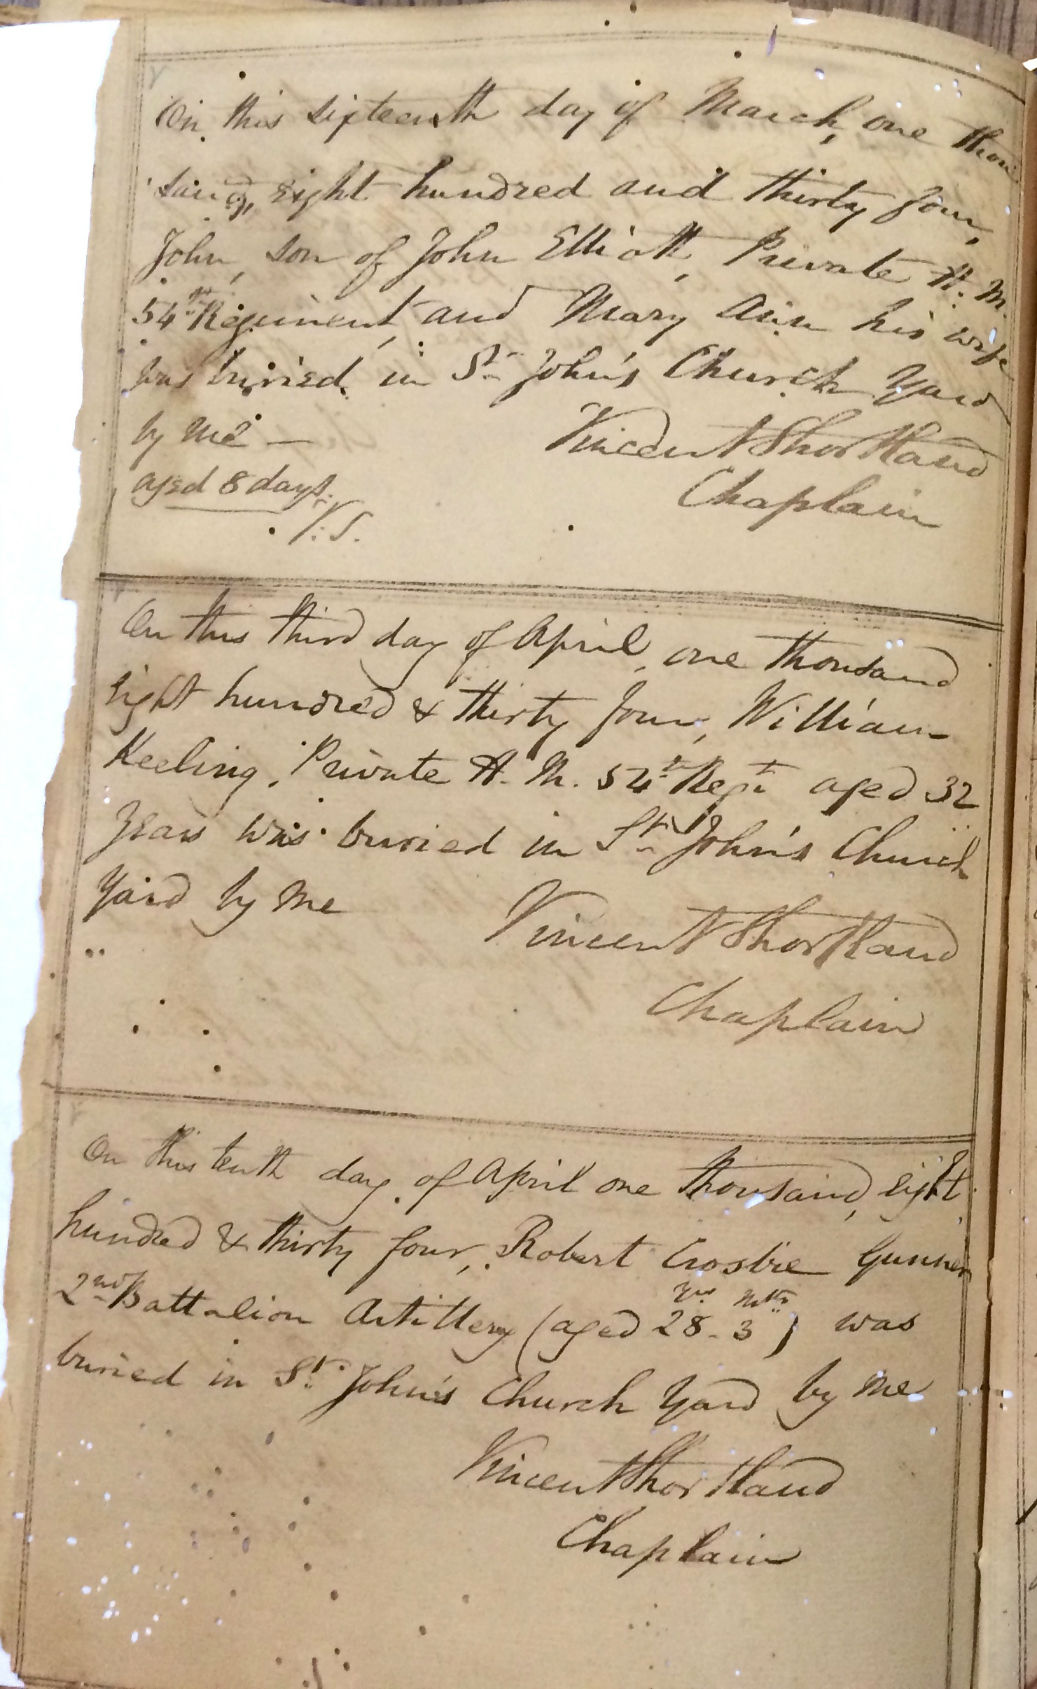 On this sixteenth day of March, one thou
sand, eight hundred and thirty four,
John, son of John Elliott, Private H. M.
54th Regiment, and Mary Ann his wife
was buried in St John's Church Yard
by me —
Vincent Shortland
aged 8 days.
Chaplain
V.S.
On this third day of April, one thousand
eight hundred & thirty four, William
Keeling, Private H. M. 54th Regt aged 32
years was buried in St John's Church
Yard by me
Vincent Shortland
Chaplain
On this tenth day of April one thousand, eight
hundred & thirty four, Robert Crosbie Gunner
2nd Battalion Artillery (aged 28 yrs 3 mths) was
buried in St John's Church Yard by me
Vincent Shortland
Chaplain